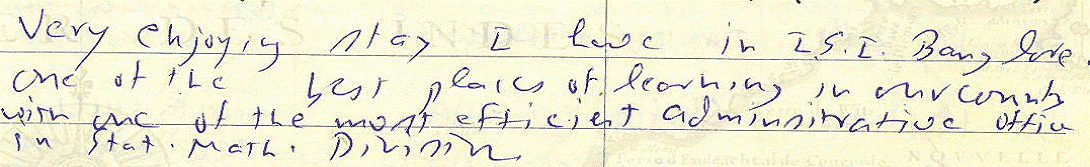 Very enjoying stay I have in I.S.I. Banglore.
one of the best places of learning in our country
with one of the most efficient administrative office
in Stat. Math. Division